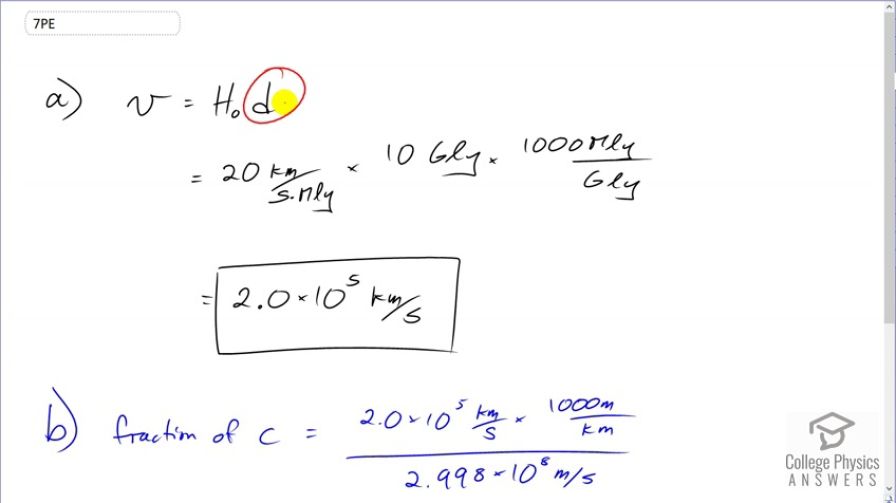 7PE
a) v = H₀ d
= 20 km/s·Mly × 10 Gly × 1000 Mly/Gly
= 2.0 × 10⁵ km/s
b) fraction of c = 2.0 × 10⁵ km/s × 1000 m/km / 2.998 × 10⁸ m/s
College Physics
ANSWERS